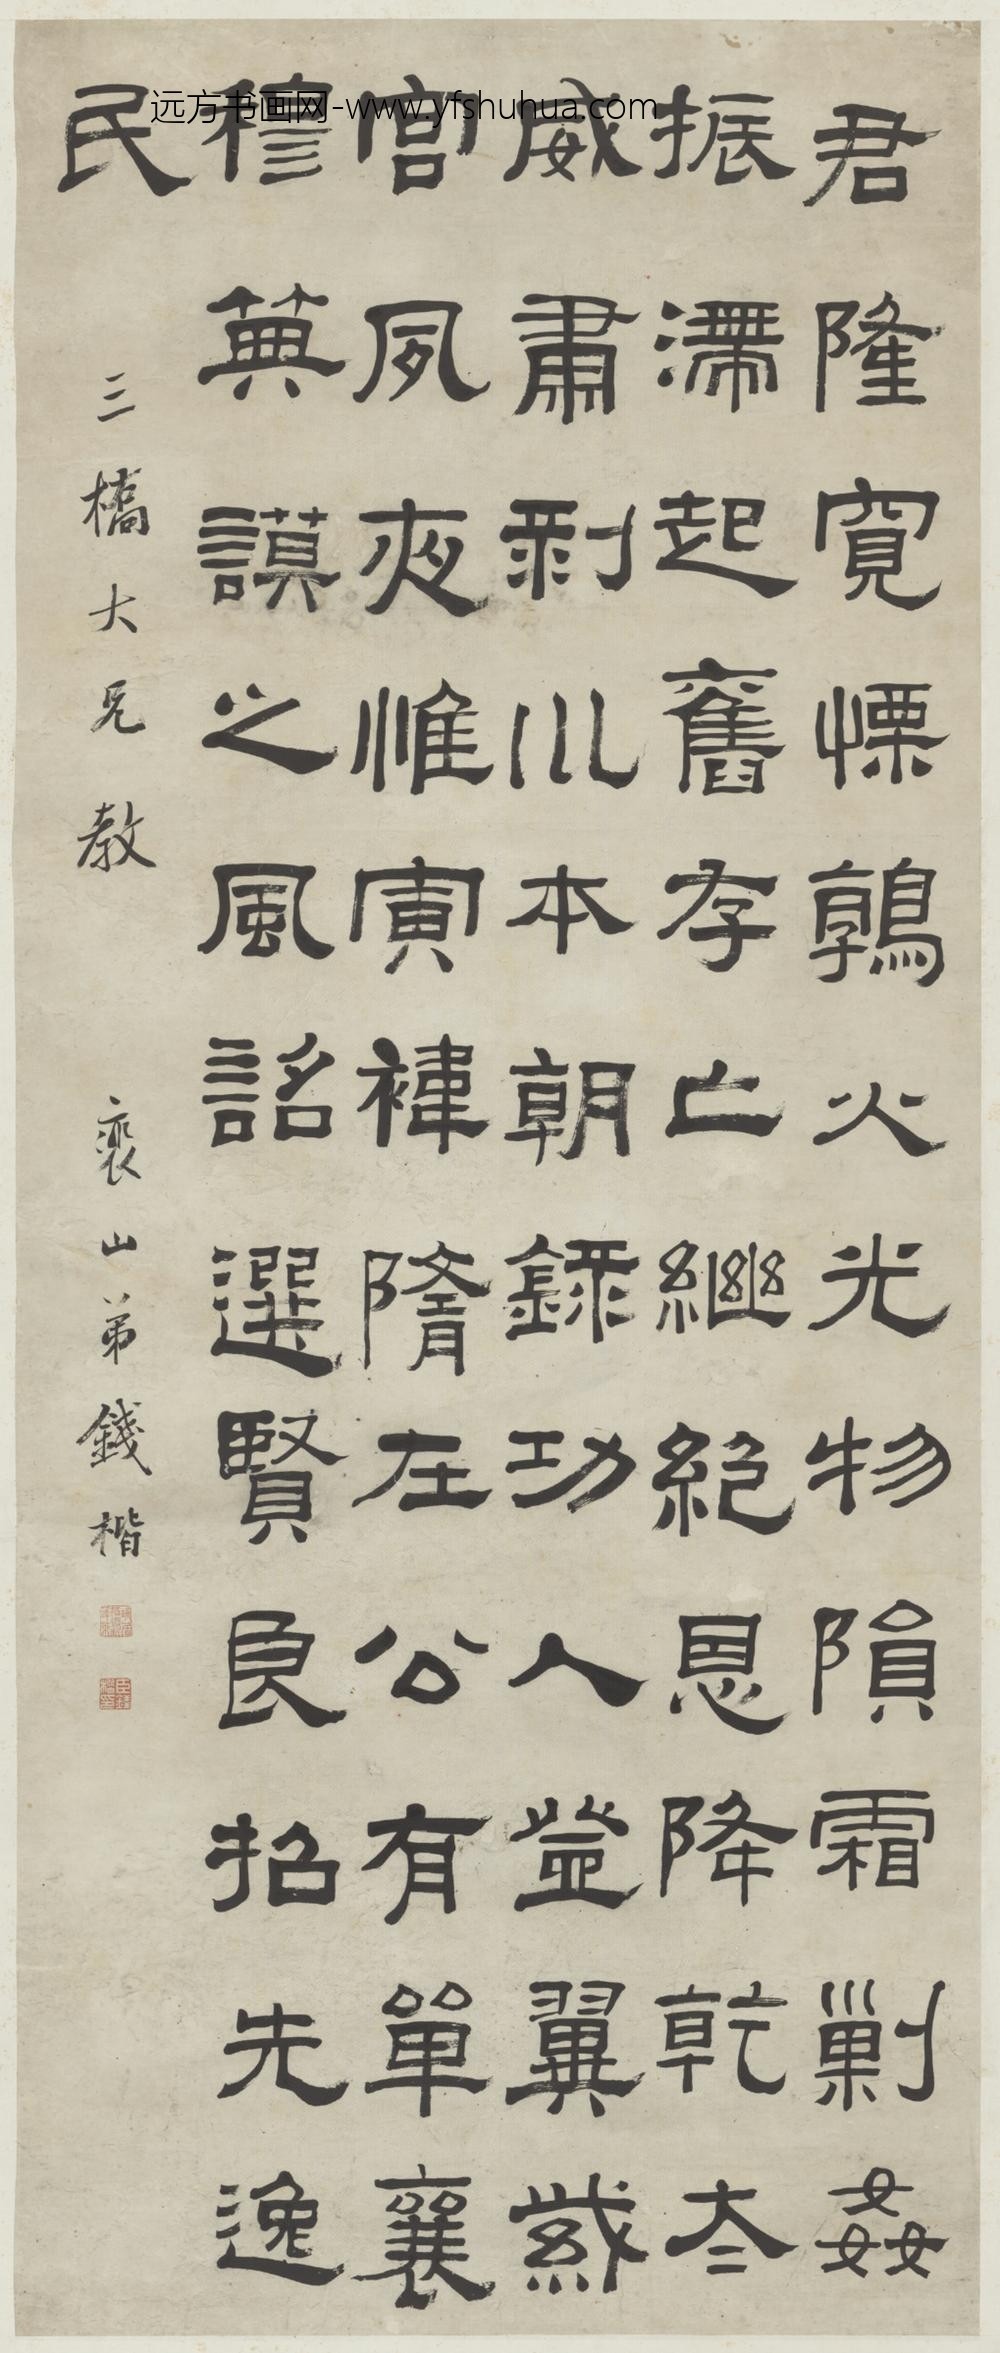 君隆寬慄鶉火光物隕霜剿姦
振滯起舊存亡繼絕恩降乾太
威肅剥川本朝錄功入登翼
宫夙夜惟寅褘隋在公有單襄
穆典謨之風詔選賢良招先逸
民
三橋大兄教
裴山弟錢楷
远方书画网-www.yfshuhua.com